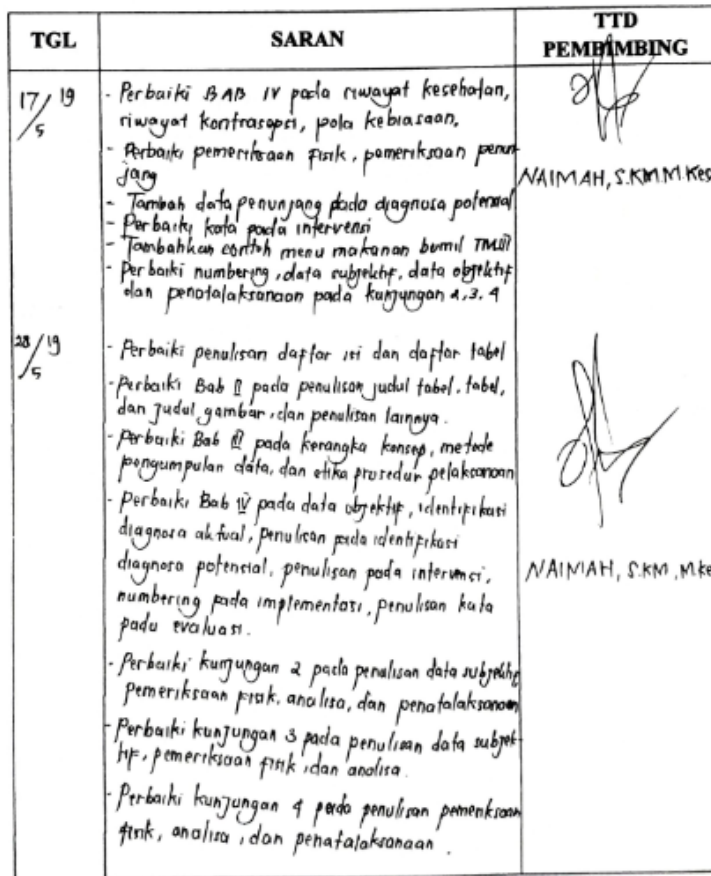 TGL SARAN TTD PEMBIMBING
17/5 19
- Perbaiki BAB IV pada riwayat kesehatan,
riwayat kontrasepsi, pola kebiasaan.
- Perbaiki pemeriksaan fisik, pemeriksaan penun
jang
- Tambah data penunjang pada diagnosa potensial
- Perbaiki kata pada intervensi
- Tambahkan contoh menu makanan bumil TM III
- Perbaiki numbering, data subjektif, data objektif
dan penatalaksanaan pada kunjungan 2, 3, 4
NAIMAH, S.KM M.Kes
28/5 19
- Perbaiki penulisan daftar isi dan daftar tabel
- Perbaiki Bab II pada penulisan judul tabel, tabel,
dan judul gambar, dan penulisan lainnya.
- Perbaiki Bab III pada kerangka konsep, metode
pengumpulan data, dan etika prosedur pelaksanaan
- Perbaiki Bab IV pada data objektif, identifikasi
diagnosa aktual, penulisan pada identifikasi
diagnosa potensial, penulisan pada intervensi,
numbering pada implementasi, penulisan kata
pada evaluasi.
- Perbaiki kunjungan 2 pada penulisan data subjektif
pemeriksaan fisik, analisa, dan penatalaksanaan
- Perbaiki kunjungan 3 pada penulisan data subjek
tif, pemeriksaan fisik, dan analisa.
- Perbaiki kunjungan 4 pada penulisan pemeriksaan
fisik, analisa, dan penatalaksanaan.
NAIMAH, S.KM, M.Ke